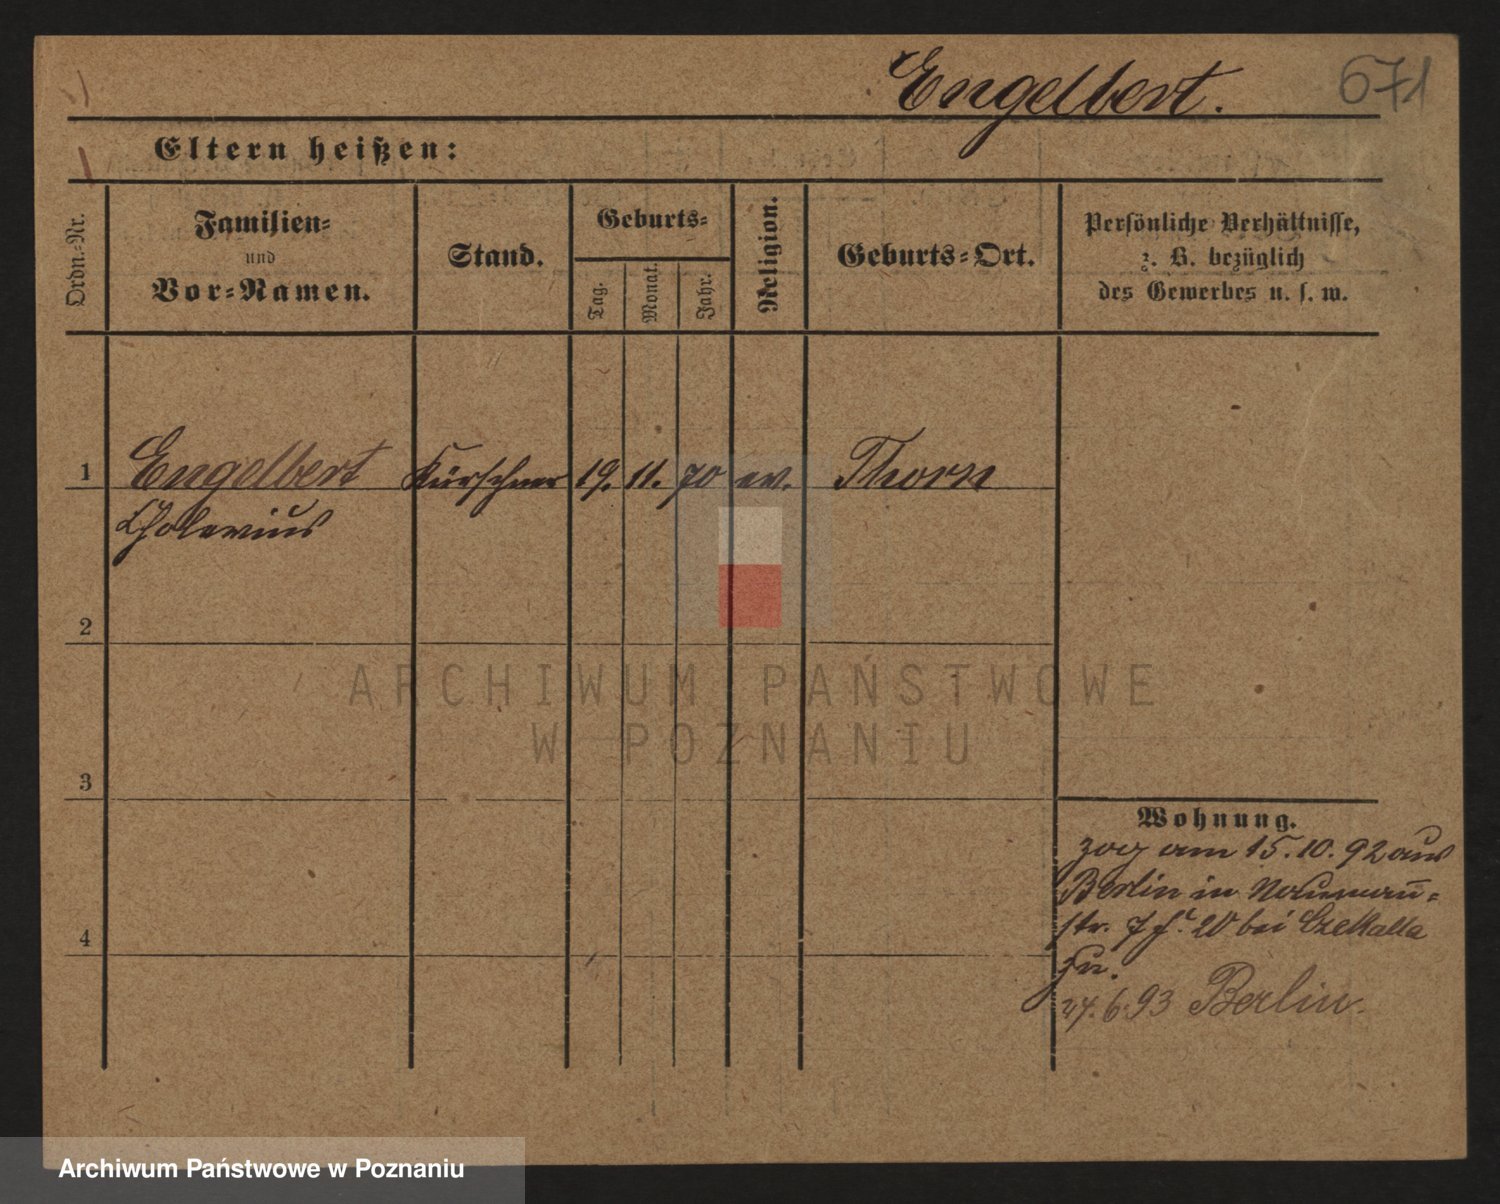 Engelbert.
671
Eltern heißen:
Ordn.-Nr.
Familien-
und
Vor-Namen.
Stand.
Geburts-
Tag.
Monat.
Jahr.
Religion.
Geburts-Ort.
Persönliche Verhältnisse,
z. B. bezüglich
des Gewerbes u. s. w.
1
Engelbert Kürschner 19. 11. 70 ev. Thorn
Cholevius
2
3
4
Wohnung.
zog am 15.10.92 aus
Berlin in Nauman̄-
str. 7 20 bei Czekalla
zu.
24.6.93 Berlin.
ARCHIWUM PAŃSTWOWE
W POZNANIU
Archiwum Państwowe w Poznaniu